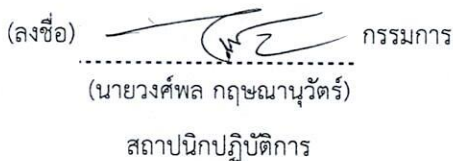 (ลงชื่อ) กรรมการ
(นายวงศ์พล กฤษณานุวัตร์)
สถาปนิกปฏิบัติการ